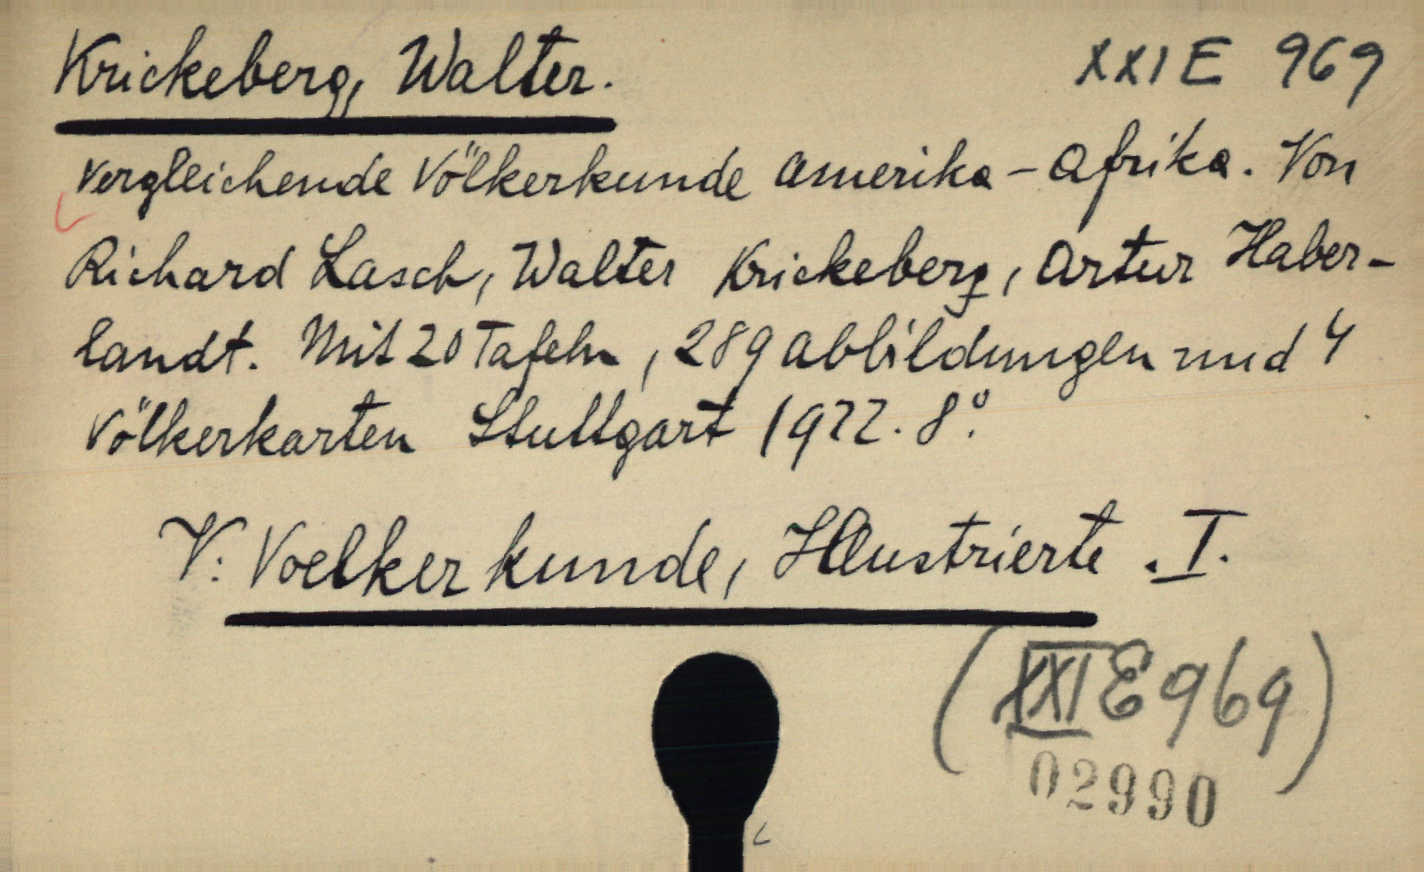 Krickeberg, Walter. XXI E 969
Vergleichende Völkerkunde Amerika - Afrika. Von
Richard Lasch, Walter Krickeberg, Artur Haber-
landt. Mit 20 Tafeln, 289 Abbildungen und 4
Völkerkarten Stuttgart 1922. 8°.
V: Voelkerkunde, Illustrierte. I.
(XXI E 969)
02990